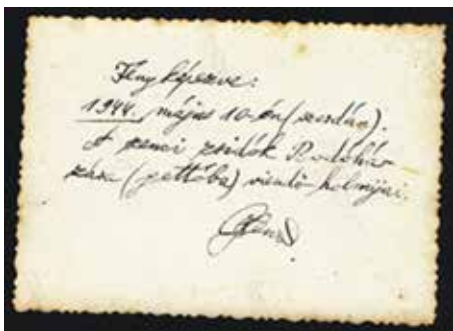 Fényképezve:
1944. május 10-én (szerdán).
A szenci zsidók
(gettóba) viendő holmijai.